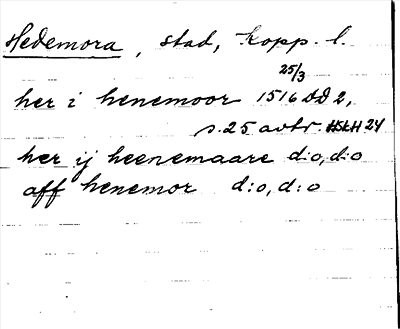 Hedemora, stad, Kopp. l.
25/3
her i henemoor 1516 DD 2,
s. 25 avtr. HSLH 24
her ij heenemaare d:o, d:o
aff henemor d:o, d:o